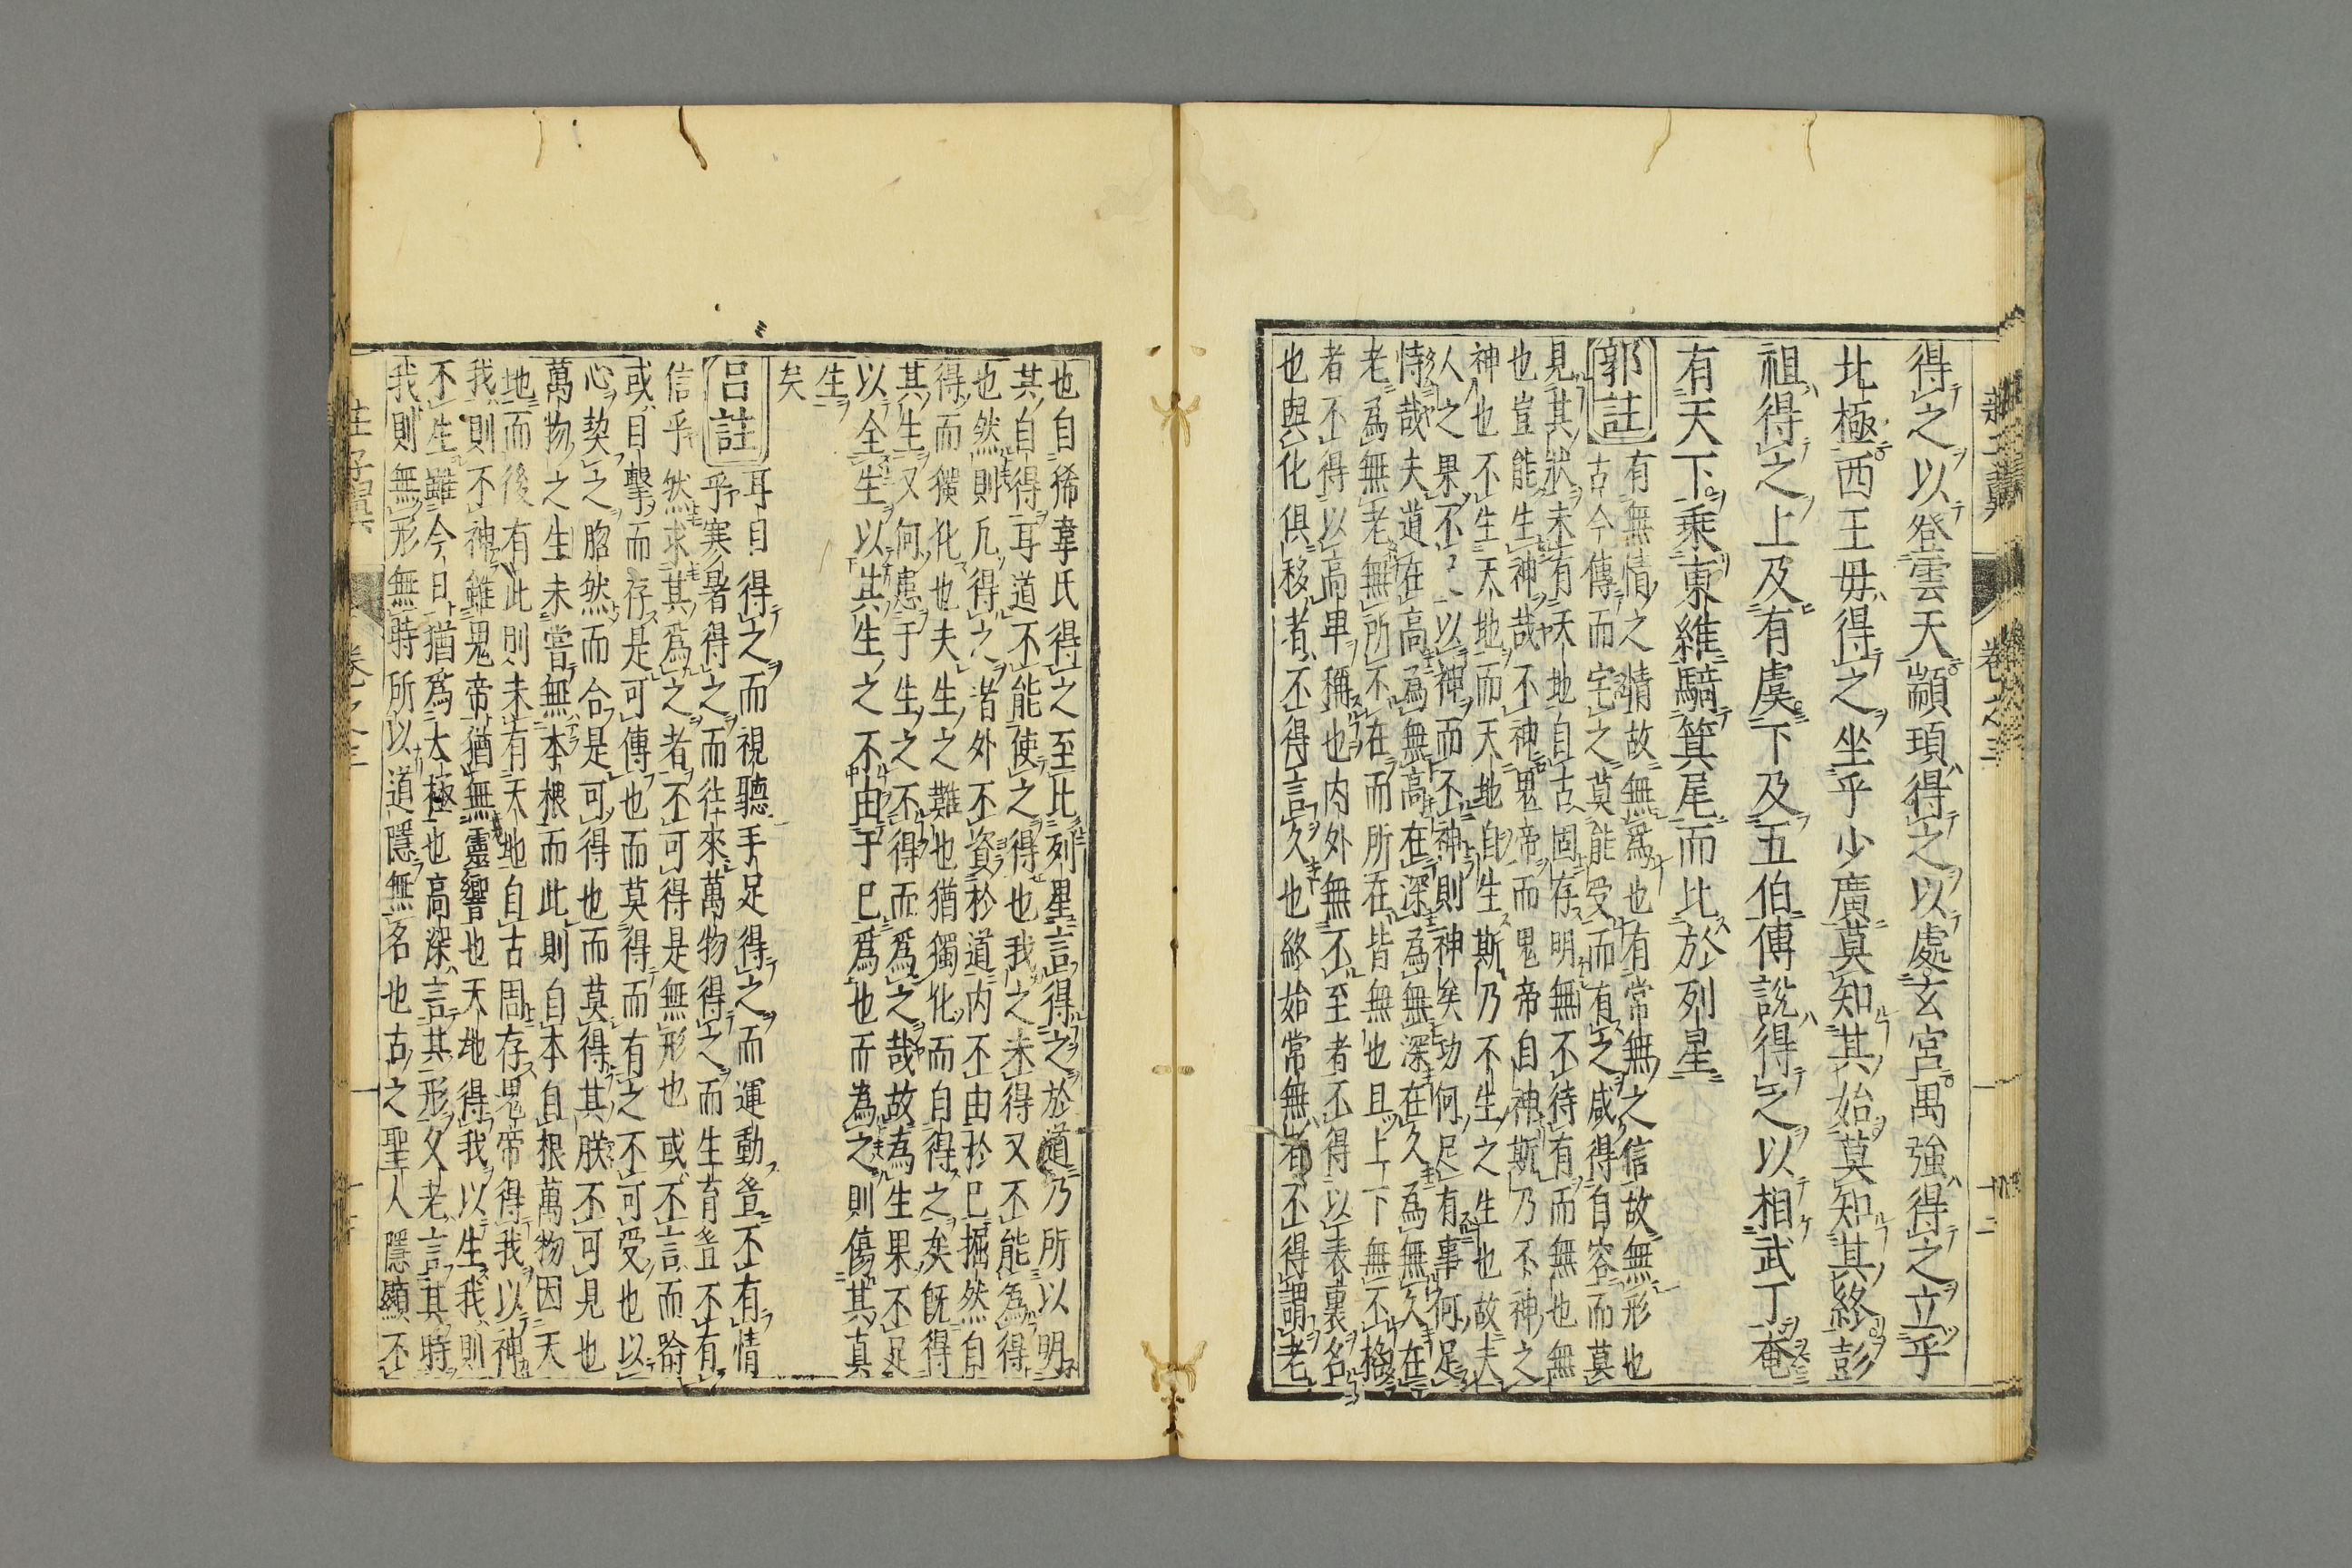 莊子翼 卷之三 十二
得之以登雲天顓頊得之以處玄宮禺強得之立乎
北極西王毋得之坐乎少廣莫知其始莫知其終彭
祖得之上及有虞下及五伯傅說得之以相武丁奄
有天下乘東維騎箕尾而比於列星
郭註 有無情之情故無爲也有常無之信故無形也
古今傳而宅之莫能受而有之咸得自容而莫
見其狀未有天地自古固存明無不待有而無也無
也豈能生神哉不神鬼帝而鬼帝自神斯乃不神之
神也不生天地而天地自生斯乃不生之生也故夫
人之果不以神而不神則神矣功何足有事何足
恃哉夫道在高爲無高在深爲無深在久爲無久在
老爲無老無所不在而所在皆無也且上下無不格
者不得以高卑稱也內外無不至者不得以表裏名
也與化俱移者不得言久也終始常無者不得謂老
也自狶韋氏得之至比列星言得之於道乃所以明
其自得耳道不能使之得也我之未得又不能為得
也然則凡得之者外不資於道內不由於己掘然自
得而獨化也夫生之難也猶獨化而自得之矣旣得
其生又何患于生之不得而爲之哉故為生果不足
以全生以其生之不由于己爲也而為之則傷其真
生
矣
呂註 耳目得之而視聽手足得之而運動豈不有情
乎寒暑得之而往來萬物得之而生育豈不有
信乎然求其爲之者不可得是無形也或不言而喻
或目擊而存是可傳也而莫得而有之不可受也以
心契之脗然而合是可得也而莫得其朕不可見也
萬物之生未嘗無本根而此則自本自根萬物因天
地而後有此則未有天地自古固存鬼帝得我以神
我則不神雖鬼帝猶無靈響也天地得我以生我則
不生雖今日猶爲太極也高深言其形久老言其時
我則無形無時所以道隱無名也古之聖人隱顯不
莊子翼 卷之三